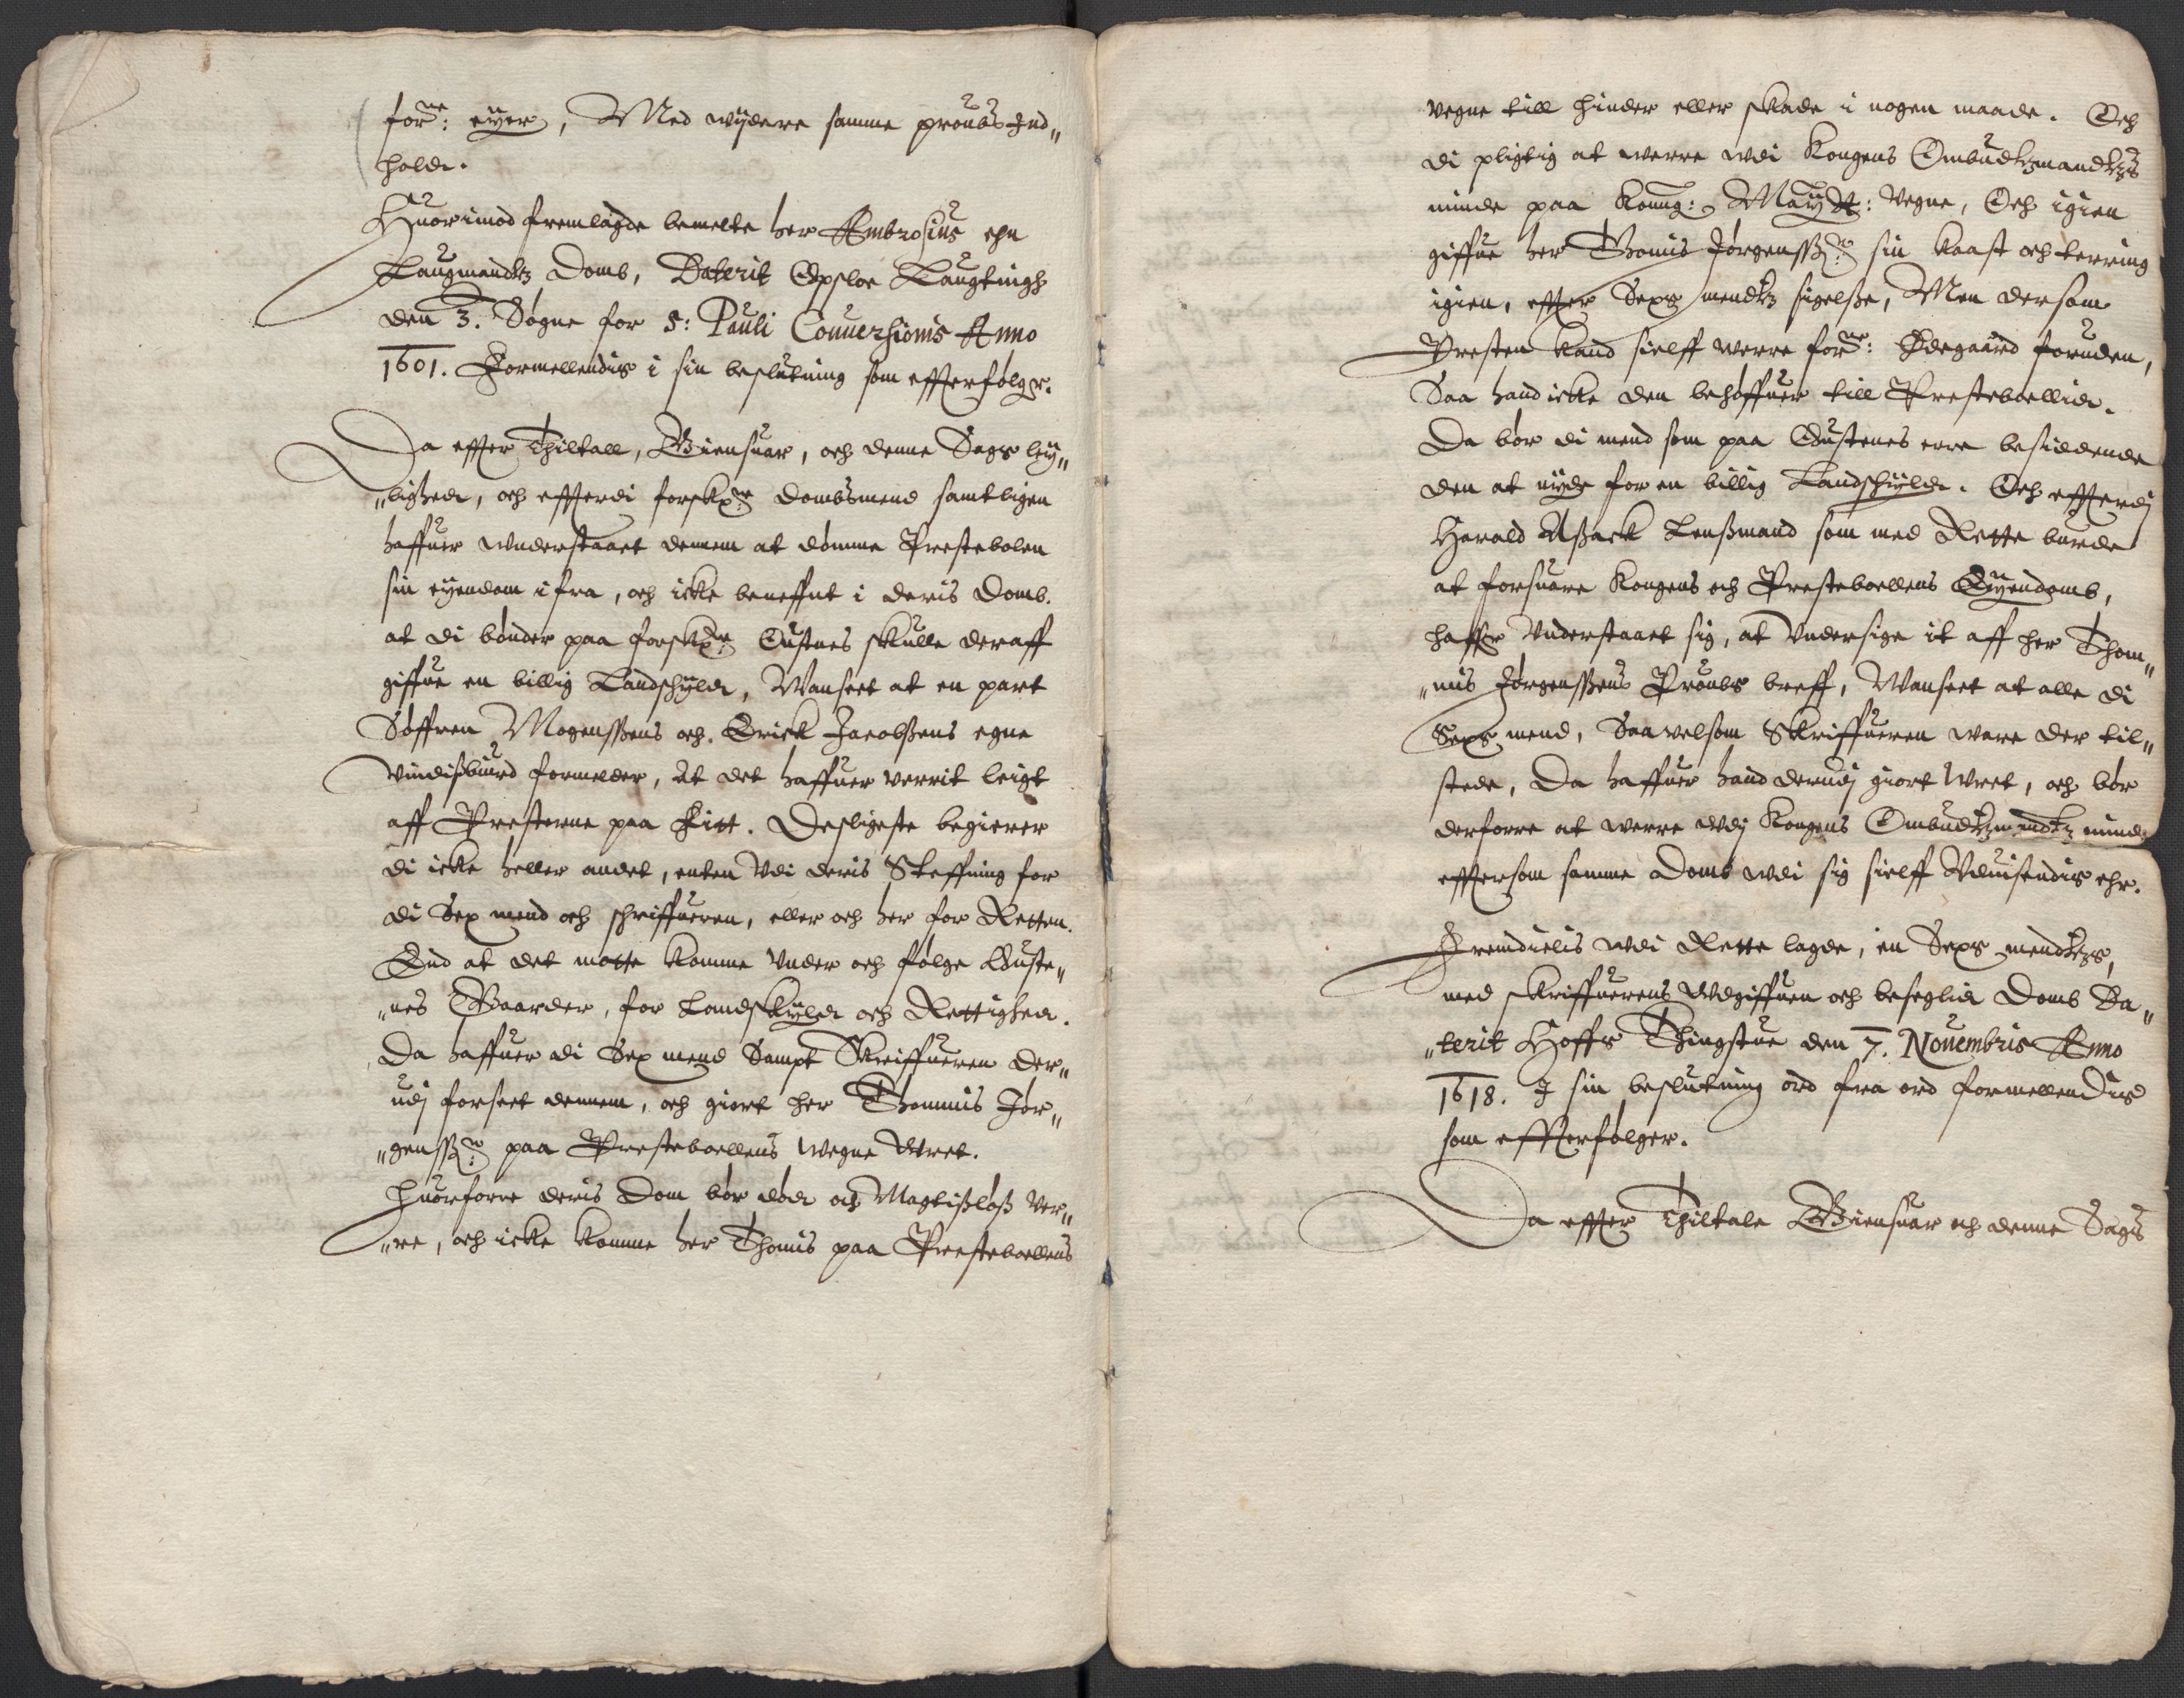 forne: eyer, Med wydere samme proubs Ind„
hold.
Huorimod fremlagde bemelte her Ambrosius ehn
Laugmandtz Domb, Daterit Opsloe Laugtingh
den 3. Søgne for S: Pauli Conuersionis Anno
1601. Formellendis i sin beslutning som effterfølger.
Da effter Thiltall, Giensuar, och denne Sags ley„
„lighed, och effterdi forskne: dombsmend samtligen
haffuer wnderstaaet dennem at dømme Prestebolen
sin eyendom ifra, och icke beneffnt i deris Domb.
at di bønder paa forskne: Oustnes skulle deraff
giffue en billig Landschyld, Wanseet at en part
Søffren Mogenssens och Erick Jacobssens egne
vindisbiurd formelder, At det haffuer verrit leigt
aff Presterne paa Fitt. Desligeste begierer
di icke heller andet, enten Vdi deris Steffning for
di Sex mend och schriffueren, eller och her for Retten.
End at det motte komme Vnder och følge Ouste„
„nes Gaarder, for Landskyld och Rettighed.
Da haffuer di Sex mend Sampt Skriffueren der„
udj forseet dennem, och giort her Thommis Jør„
„genssøn: paa Presteboellens Wegne Wret.
Huorforre deris Dom bør død och Magtisløss ver„
„re, och icke komme her Thomis paa Presteboellens
vegne till hinder eller skade i nogen maade. Och
di pligtig at werre wdi Kongens Ombudtzmandtzs
minde paa Konng: Maytt: Vegne, Och igien
giffue her Thomis Jørgenssøn: sin kaast och terring
igien, effter Sexs mendtz sigelsse, Men dersom
Presten kand sielff werre forne: Ødegaard foruden,
Saa hand icke den behøffuer till Presteboellid.
Da bør di mend som paa Oustenes erre besiddende
den at nyde for en billig Landschyld. Och effterdj
Harald Assack Lenssmand som med Rette burde
at forsuare Kongens och Presteboellens Eyendomb,
haffr Vnderstaaet sig, at Vndersige it aff her Thom„
„mis Jørgenssens Proubs breff, Wanseet at alle di
Sexs mend, Saavelsom Skriffueren ware der til„
stede, Da haffuer hand derudj giort Wret, och bør
derforre at werre Wdj Kongens Ombudtzmandtz minde
effttersom samme Domb wdi sig sielff Vduisendis ehr.
Fremdielis wdi Rette lagde, en Sexs mendtzs,
med skriffuerens Vdgiffuen och beseglid Domb Da„
„terit Hoffs Thingstue den 7. Nouembris Anno
1618. I sin beslutning ord fra ord formellendis
som effterfølger.
Da effter Thiltale Giensuar och denne Sags